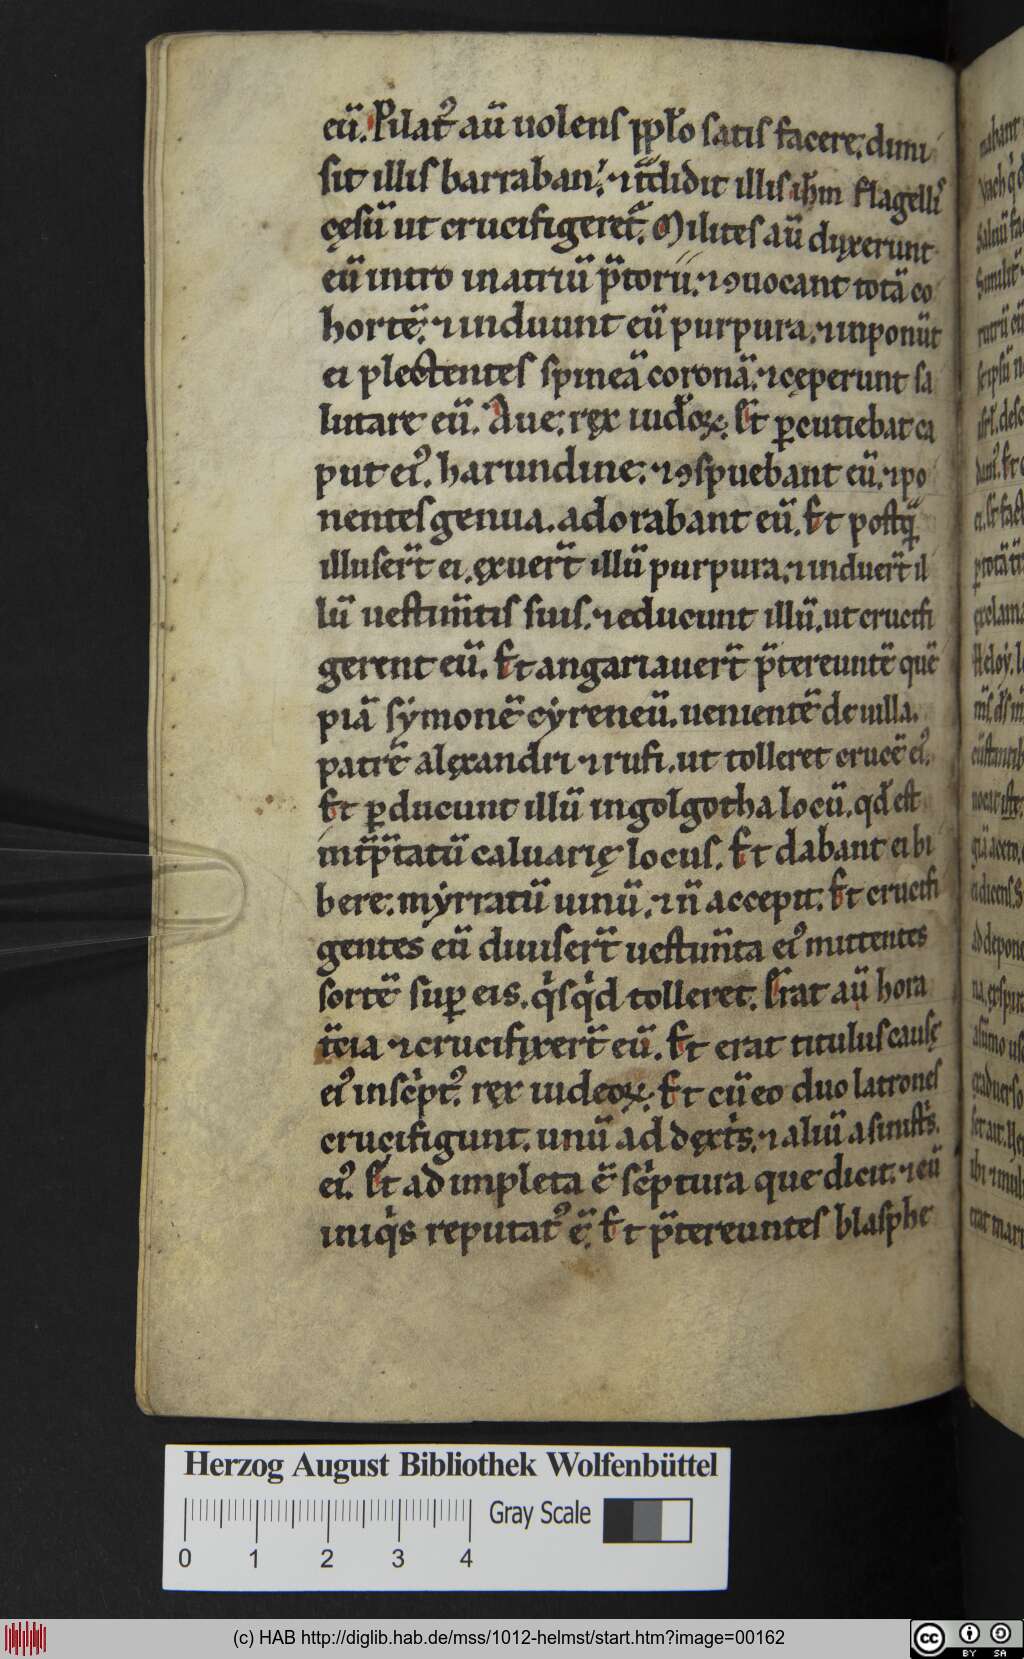 eū. Pilat᷒ aū uolens pplo satis facere. dimi
sit illis barraban. ⁊ t̄didit illis ihm flagelli᷒
cęsū ut crucifigeret᷑. Milites aū duxerunt
eū intro in atriū p̄torii. ⁊ ꝯuocant totā co
hortē. ⁊ induunt eū purpura. ⁊ inponūt
ei plectentes spineā coronā. ⁊ cęperunt sa
lutare eū. Aue. rex iudꝫoꝝ. Et ꝑcutiebat ca
put ei᷒. harundine. ⁊ ꝯspuebant eū. ⁊ po
nentes genua. adorabant eū. Et postq̄
illuser̄t ei. exuer̄t illū purpura. ⁊ induer̄t il
lū uestim̄tis suis. ⁊ educunt illū. ut crucifi
gerent eū. Et angariauer̄t p̄tereuntē quē
piā sẏmonē cẏreneū. uenientē de uilla.
patrē alexandri ⁊ rufi. ut tolleret crucē ei᷒.
Et ꝑducunt illū in golgotha locū. qd̄ est
int̄p̄tatū caluarię locus. Et dabant ei bi
bere. mẏrratū uinū. ⁊ n̄ accepit. Et crucifi
gentes eū diuiser̄t uestim̄ta ei᷒ mittentes
sortē suꝑ eis. qͥsqͥd tolleret. Erat aū hora
t̄cia ⁊ crucifixer̄t eū. Et erat titulus causę
ei᷒ inscͥpt᷒. rex iudeoꝝ. Et cū eo duo latrones
crucifigunt. unū ad dextͥs. ⁊ aliū a sinistͥs.
ei᷒. Et ad impleta ē scͥptura que dicit. ⁊ cū
iniqͥs reputat᷒ ē. Et p̄tereuntes blasphe
Herzog August Bibliothek Wolfenbüttel
Gray Scale
0 1 2 3 4
(c) HAB http://diglib.hab.de/mss/1012-helmst/start.htm?image=00162
cc BY SA